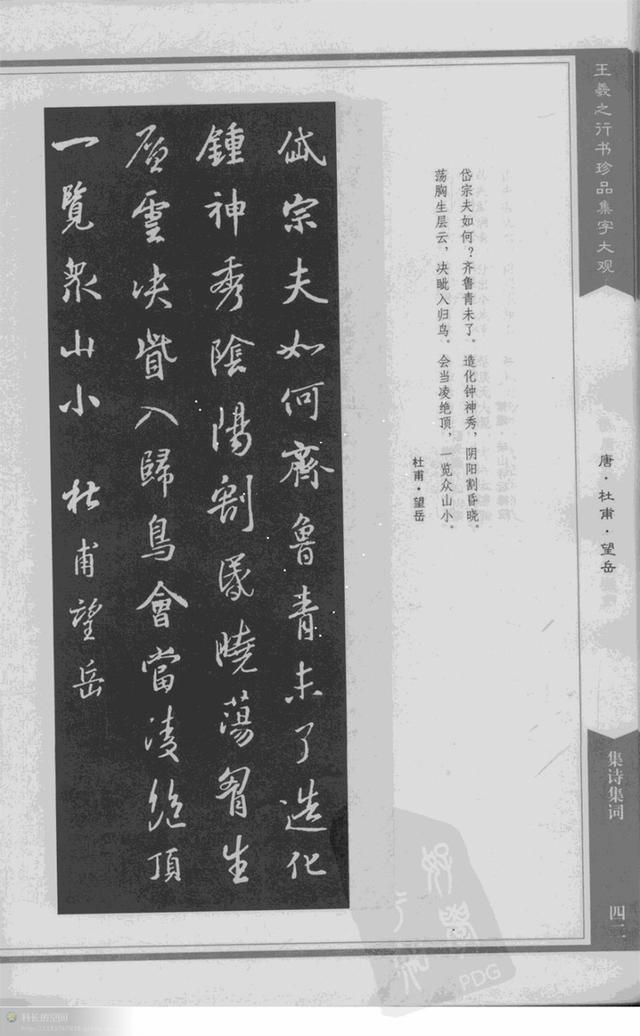 王羲之行书珍品集字大观
唐·杜甫·望岳
集诗集词
四二
岱宗夫如何？齐鲁青未了。造化钟神秀，阴阳割昏晓。
荡胸生层云，决眦入归鸟。会当凌绝顶，一览众山小。
杜甫·望岳
岱宗夫如何齊魯青未了造化
鍾神秀陰陽割昬曉蕩胷生
層雲决眥入歸鳥會當凌絶頂
一覽衆山小 杜甫望岳
PDG
科长的空间